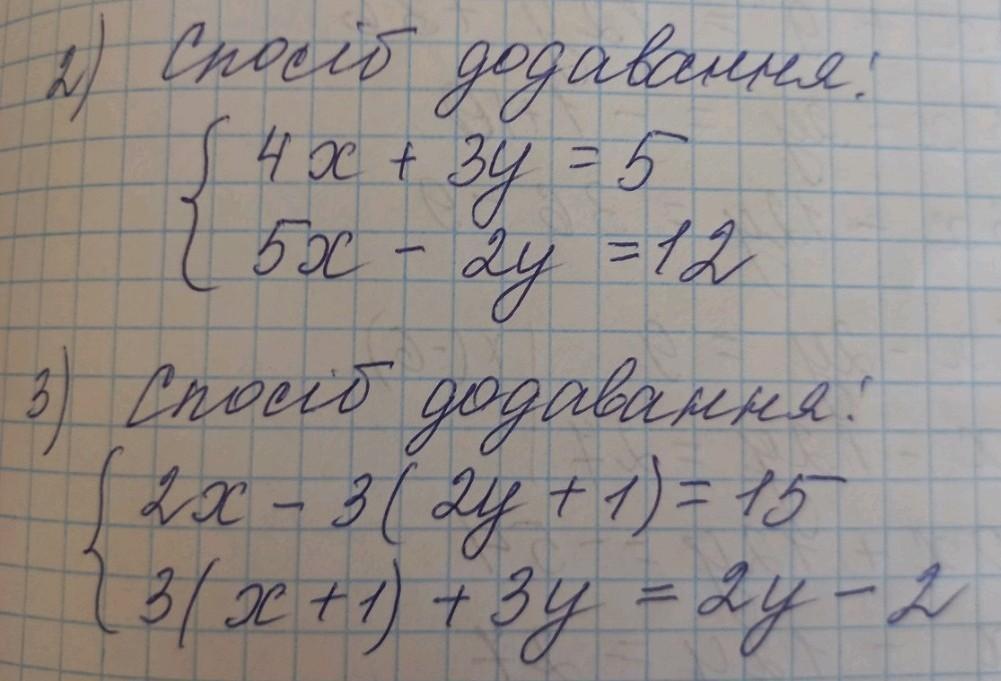 2) Спосіб додавання:
4x + 3y = 5
5x - 2y = 12
3) Спосіб додавання:
2x - 3(2y + 1) = 15
3(x + 1) + 3y = 2y - 2